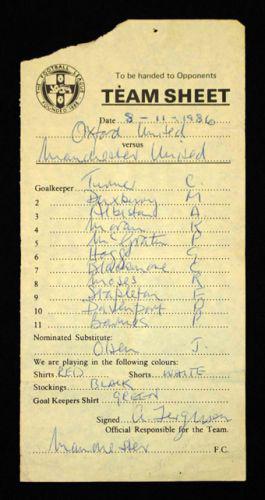 THE FOOTBALL LEAGUE
FOUNDED 1888
To be handed to Opponents
TEAM SHEET
Date 8-11-1986
Oxford United
versus
Manchester United
Goalkeeper Turner C
2 Duxbury M
3 Albiston A
4 Moran K
5 McGrath P
6 Hogg G
7 Blackmore C
8 Moses R
9 Stapleton F
10 Davenport P
11 Barnes P
Nominated Substitute:
Olsen J.
We are playing in the following colours:
Shirts RED Shorts WHITE
Stockings BLACK
Goal Keepers Shirt GREEN
Signed A Ferguson
Official Responsible for the Team.
Manchester F.C.